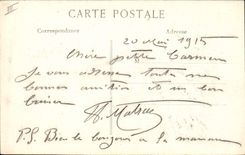 CARTE POSTALE
Correspondance Adresse
20 Mai 1915
Chère petite Carmen
Je vous adresse toutes mes
bonnes amitiés et un bon
baiser
P.S. Bien le bonjour à la maman